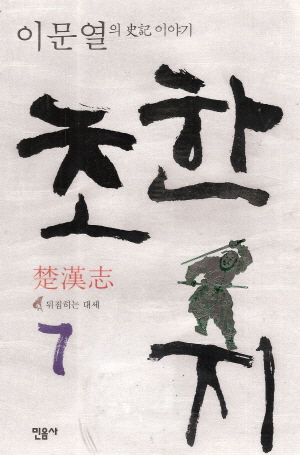 이문열의 史記 이야기
초한지
楚漢志
뒤집히는 대세
7
민음사